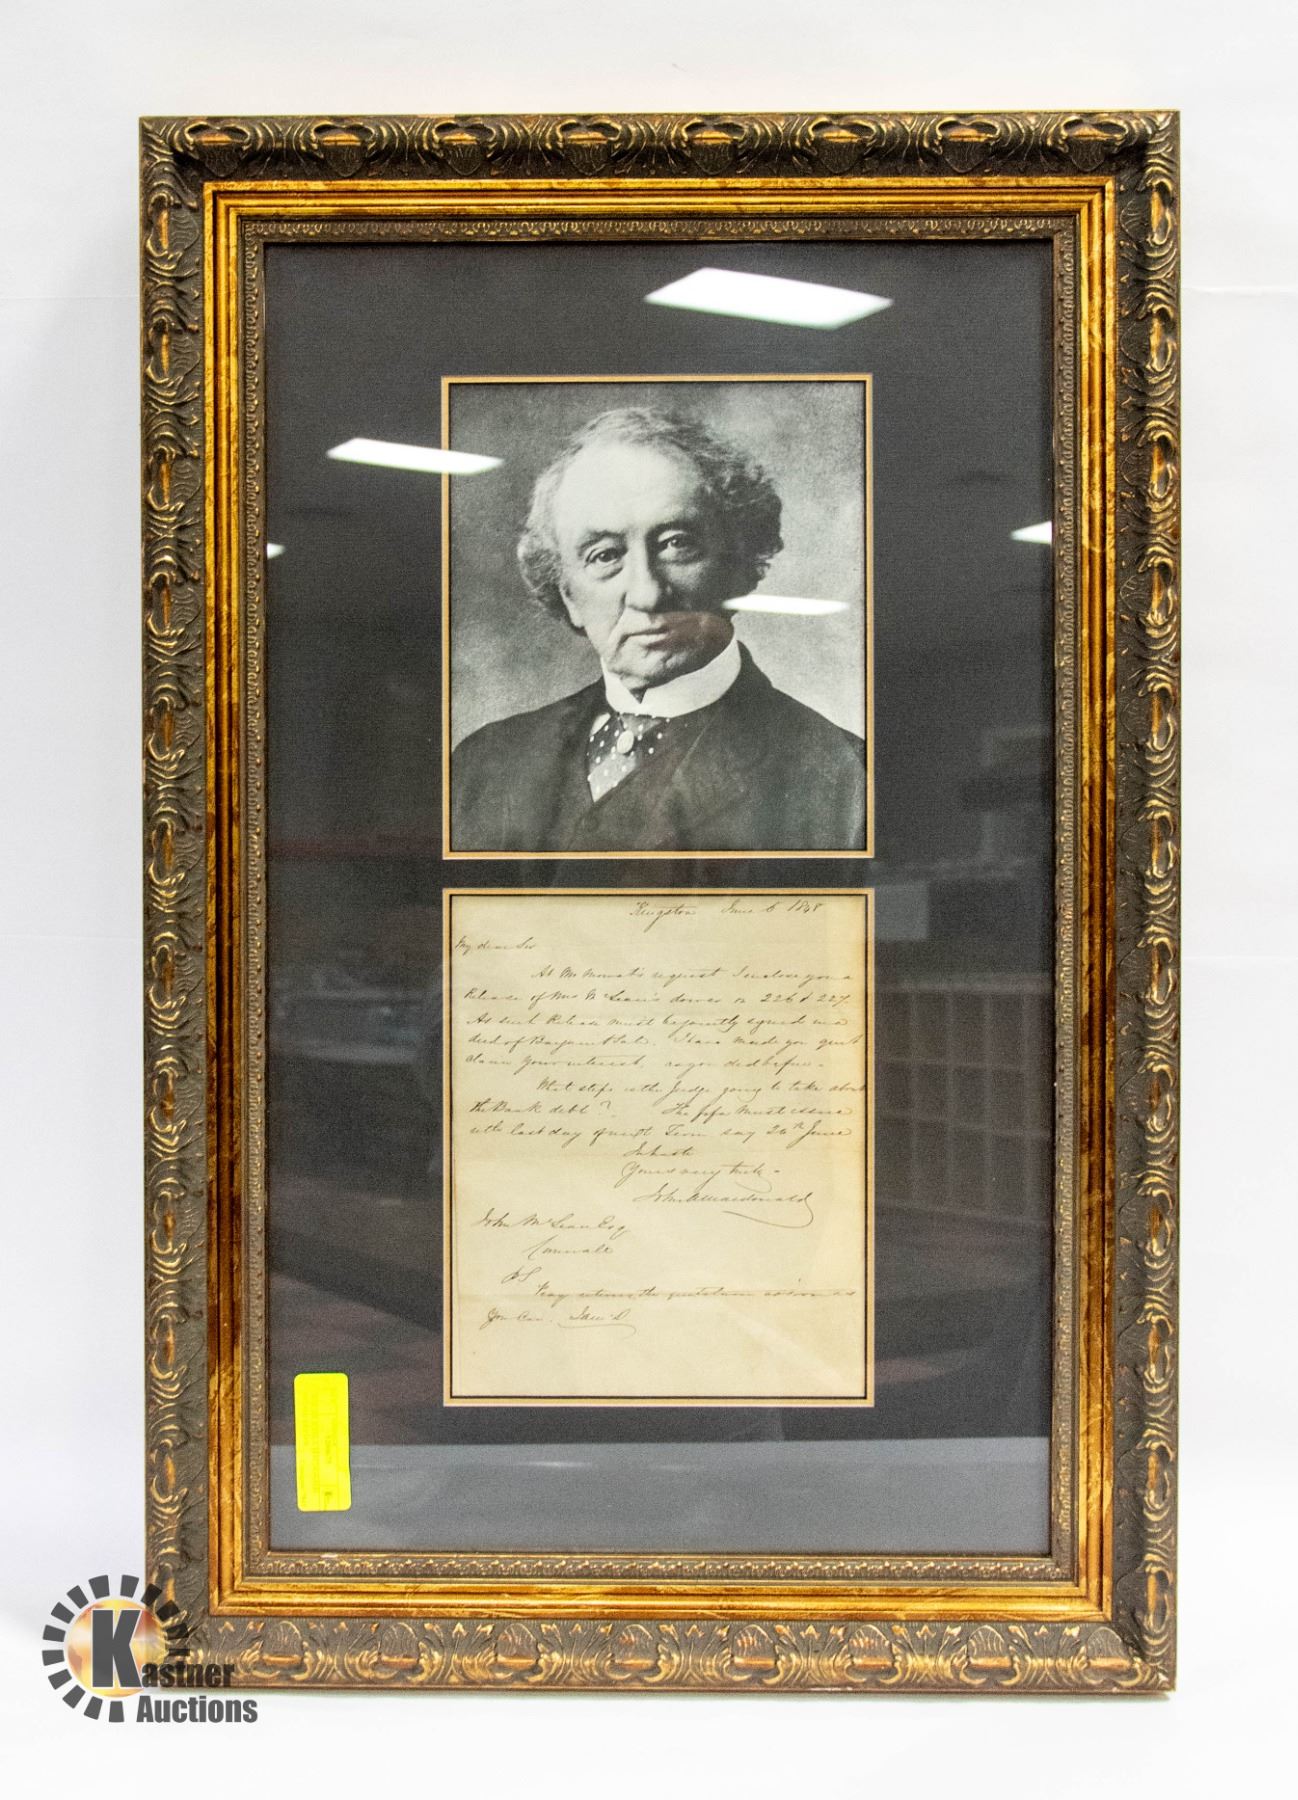 Kingston June 6 1848
My dear Sir
At Mr Mowat's request I enclose you a
Release of Mrs McLean's dower in 226 & 227.
As such Release must be jointly signed in a
deed of Bargain & Sale. I have made you quit
claim your interest, as you did before.
What steps is the Judge going to take about
the Bank debt? The fi fa must issue
with last day of next Term say 26th June
In haste
Yours very truly
John A Macdonald
John McLean Esq
Cornwall
PS
Pray return the as soon as
You can. JAMcD
Kastner
Auctions